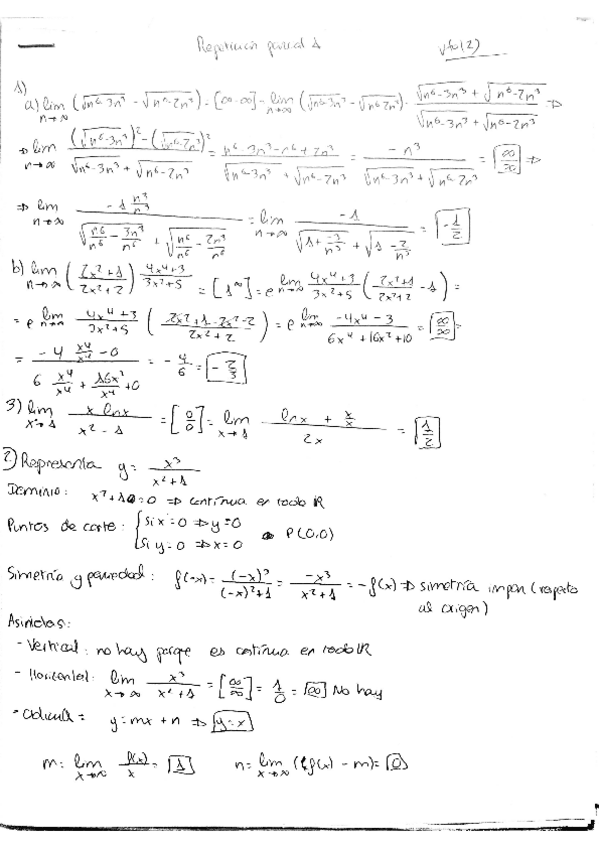 Repetición parcial 1
1)
a) lim n→∞ (√n⁶-3n³ - √n⁶-2n³) = [∞-∞] = lim n→∞ (√n⁶-3n³ - √n⁶-2n³) · (√n⁶-3n³ + √n⁶-2n³)/(√n⁶-3n³ + √n⁶-2n³) ⇒
⇒ lim n→∞ ((√n⁶-3n³)² - (√n⁶-2n³)²)/(√n⁶-3n³ + √n⁶-2n³) = (n⁶-3n³-n⁶+2n³)/(√n⁶-3n³ + √n⁶-2n³) = (-n³)/(√n⁶-3n³ + √n⁶-2n³) = [∞/∞] ⇒
⇒ lim n→∞ (-1 n³/n³)/(√(n⁶/n⁶ - 3n³/n⁶) + √(n⁶/n⁶ - 2n³/n⁶)) = lim n→∞ (-1)/(√(1+ -3/n³) + √(1 -2/n³)) = -1/2
b) lim n→∞ ((2x²+1)/(2x²+2))^((4x⁴+3)/(3x²+5)) = [1^∞] = e lim n→∞ (4x⁴+3)/(3x²+5) ((2x²+1)/(2x²+2) - 1) =
= e lim n→∞ (4x⁴+3)/(3x²+5) ((2x²+1-2x²-2)/(2x²+2)) = e lim n→∞ (-4x⁴-3)/(6x⁴+16x²+10) = [∞/∞] =
= (-4 x⁴/x⁴ -0)/(6 x⁴/x⁴ + 16x²/x⁴ +0) = -4/6 = -2/3
3) lim x→1 (x lnx)/(x²-1) = [0/0] = lim x→1 (lnx + x/x)/(2x) = 1/2
2) Representa y = x³/(x²+1)
Dominio: x²+1 = 0 ⇒ continua en todo ℝ
Puntos de corte: { si x=0 ⇒ y=0
si y=0 ⇒ x=0 P(0,0)
Simetría y paridad: f(-x) = (-x)³/((-x)²+1) = -x³/(x²+1) = -f(x) ⇒ simetría impar (respecto
al origen)
Asíntotas:
- Vertical: no hay porque es continua en todo ℝ
- Horizontal: lim x→∞ x³/(x²+1) = [∞/∞] = 1/0 = ∞ No hay
- Oblicua = y=mx+n ⇒ y=x
m = lim x→∞ f(x)/x = 1 n = lim x→∞ (f(x) - m) = 0